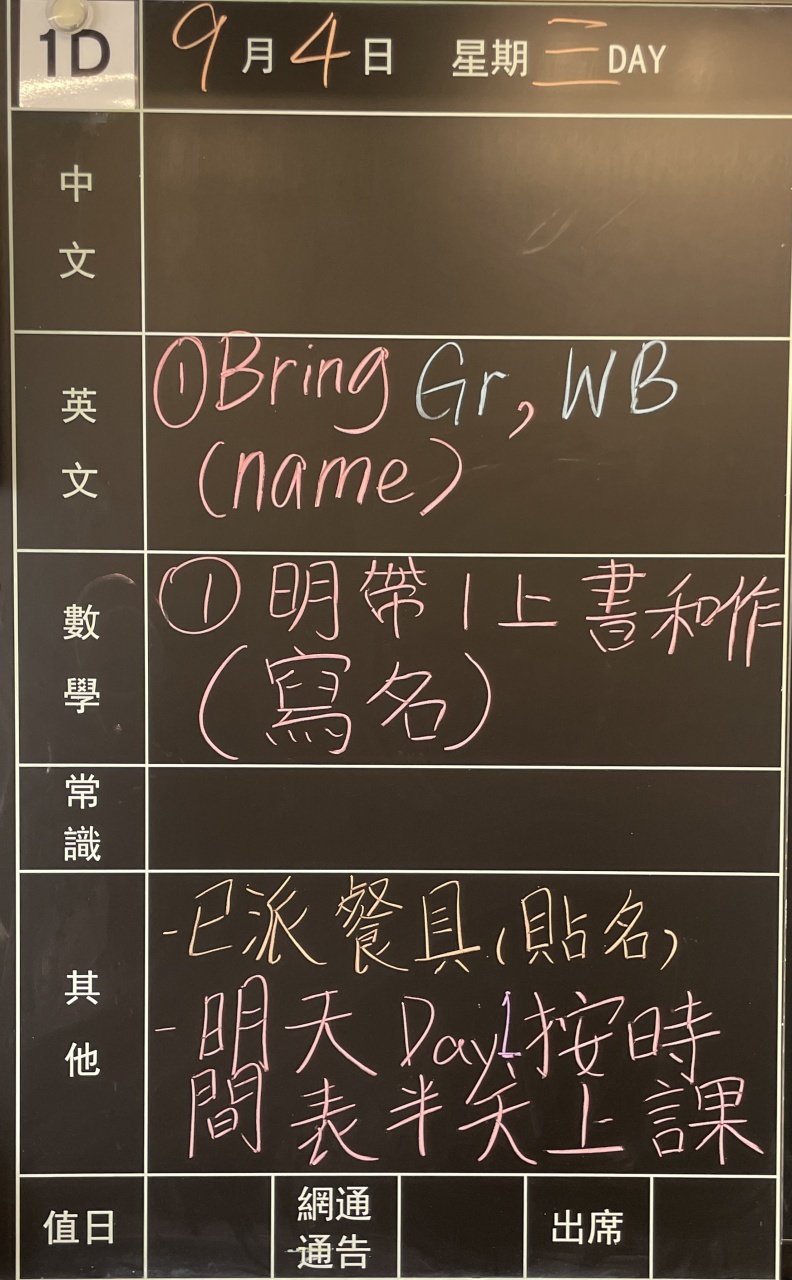 1D 9月4日 星期三DAY
中文
英文
①Bring Gr, WB
(name)
數學
①明帶1上書和作
(寫名)
常識
其他
-已派餐具(貼名)
-明天Day1按時
間表半天上課
值日 網通通告 出席